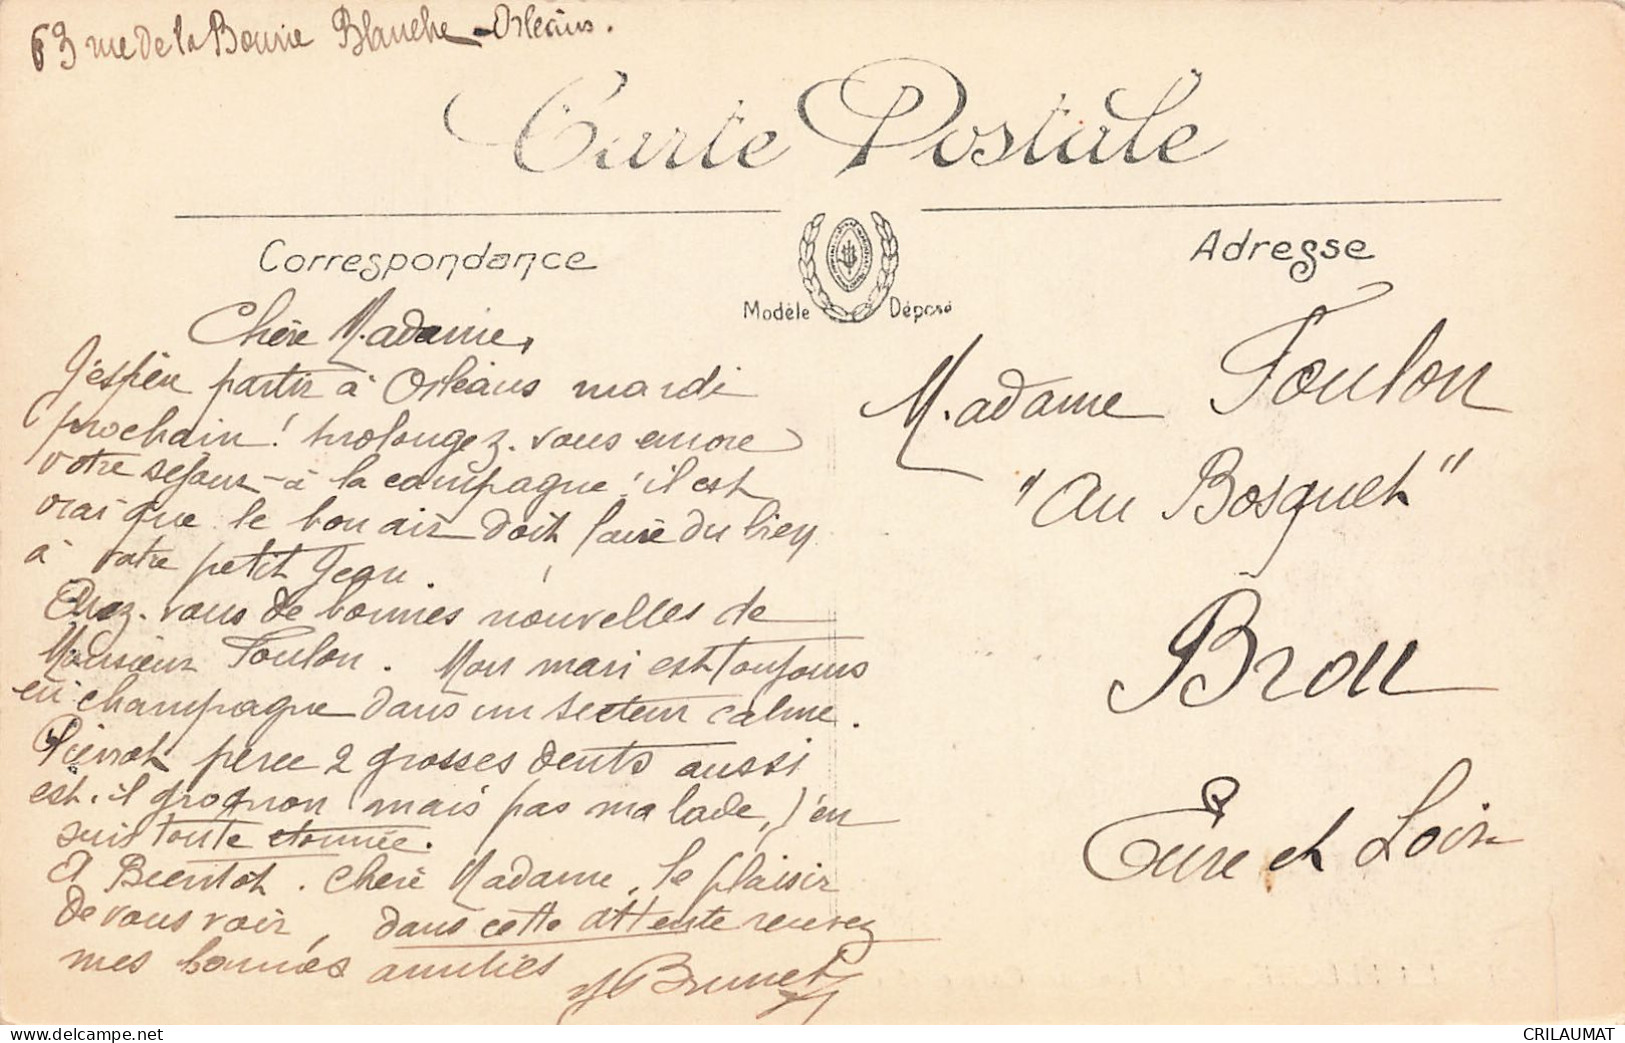 63 rue de la Bourie Blanche - Orléans.
Carte Postale
Correspondance
Adresse
Modèle Déposé
Chère Madame,
J'espère partir à Orléans mardi
prochain ! prolongez-vous encore
votre séjour à la campagne ! il est
vrai que le bon air doit faire du bien
à votre petit Jean.
Avez-vous de bonnes nouvelles de
Monsieur Foulon. Mon mari est toujours
en champagne dans un secteur calme.
Pierrot perce 2 grosses dents aussi
est-il grognon mais pas malade, j'en
suis toute étonnée.
A Bientôt. chère Madame, le plaisir
de vous voir, dans cette attente recevez
mes bonnes amitiés
Brunet
Madame Foulon
"au Bosquet"
Brou
Eure et Loir
CRILAUMAT